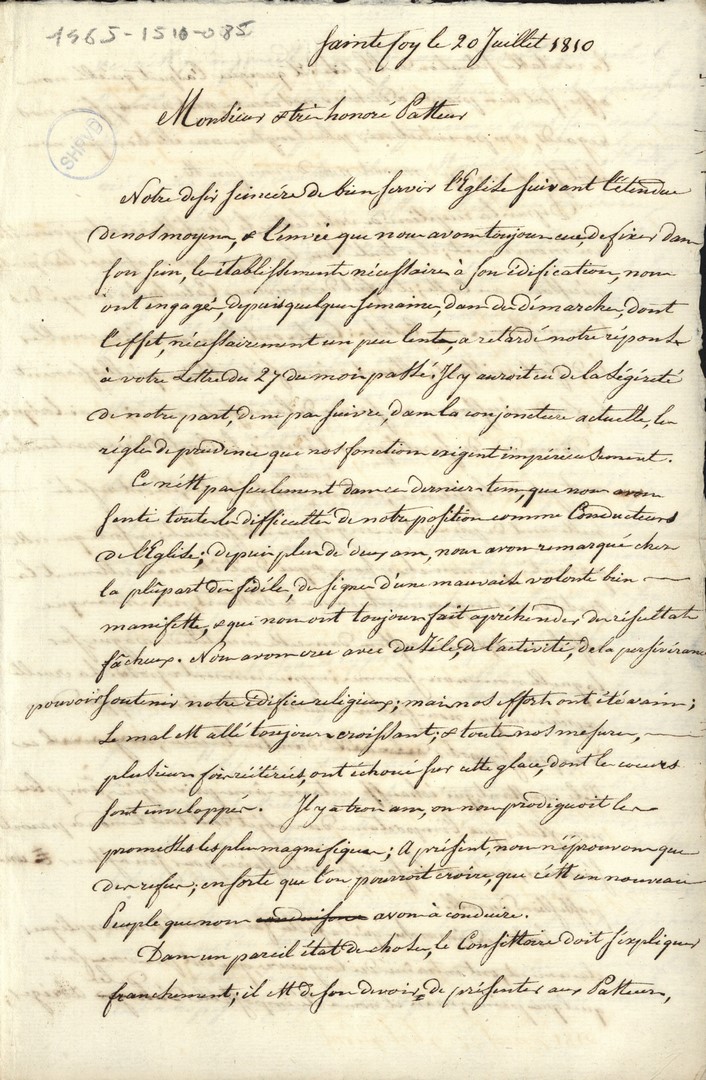 1965-1510-085
Sainte foy le 20 Juillet 1810
SHPVD
Monsieur & très honoré Pasteur
Notre desir sincère de bien servir l'Eglise suivant l'étendue
de nos moyens, & l'envie que nous avons toujours eue, de fixer dans
son sein, les établissements nécessaires à son édification, nous
ont engagés, depuis quelques semaines, dans des démarches, dont
l'effet, nécessairement un peu lent, a retardé notre réponse
à votre Lettre du 27 du mois passé. Il y auroit eu de la légéreté
de notre part, de ne pas suivre, dans la conjoncture actuelle, les
régles de prudence que nos fonctions exigent impérieusement.
Ce n'est pas seulement dans ces derniers tems, que nous avons
senti toutes les difficultés de notre position comme Conducteurs
de l'Eglise; depuis plus de deux ans, nous avons remarqué chez
la plûpart des fidéles, des signes d'une mauvaise volonté bien
manifeste, & qui nous ont toujours fait apréhender des résultats
fâcheux. Nous avons cru avec du zéle, de l'activité, de la persévérance
pouvoir soutenir notre édifice religieux; mais nos efforts ont été vains;
Le mal est allé toujours croissant; & toutes nos mesures,
plusieurs fois réitérées, ont échoué sur cette glace, dont les cœurs
sont enveloppés. Il y a trois ans, on nous prodiguoit les
promesses les plus magnifiques; A présent, nous n'éprouvons que
des refus; ensorte que l'on pourroit croire, que c'est un nouveau
Peuple que nous avons à conduire.
Dans un pareil état de choses, le Consistoire doit s'expliquer
franchement; il est de son devoir, de présenter aux Pasteurs,